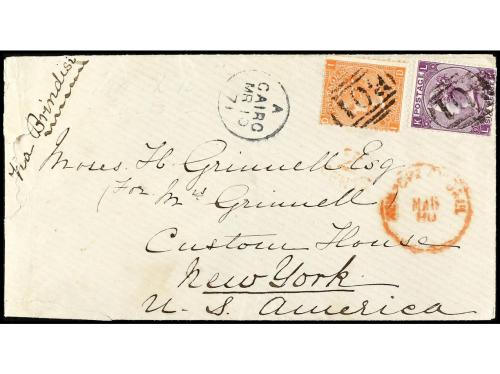 Via Brindisi
A
CAIRO
MR
71
B01
POSTAGE
Moses H. Grinnell Esq
(For Mrs Grinnell)
Custom House
New York
U. S. America
MAR